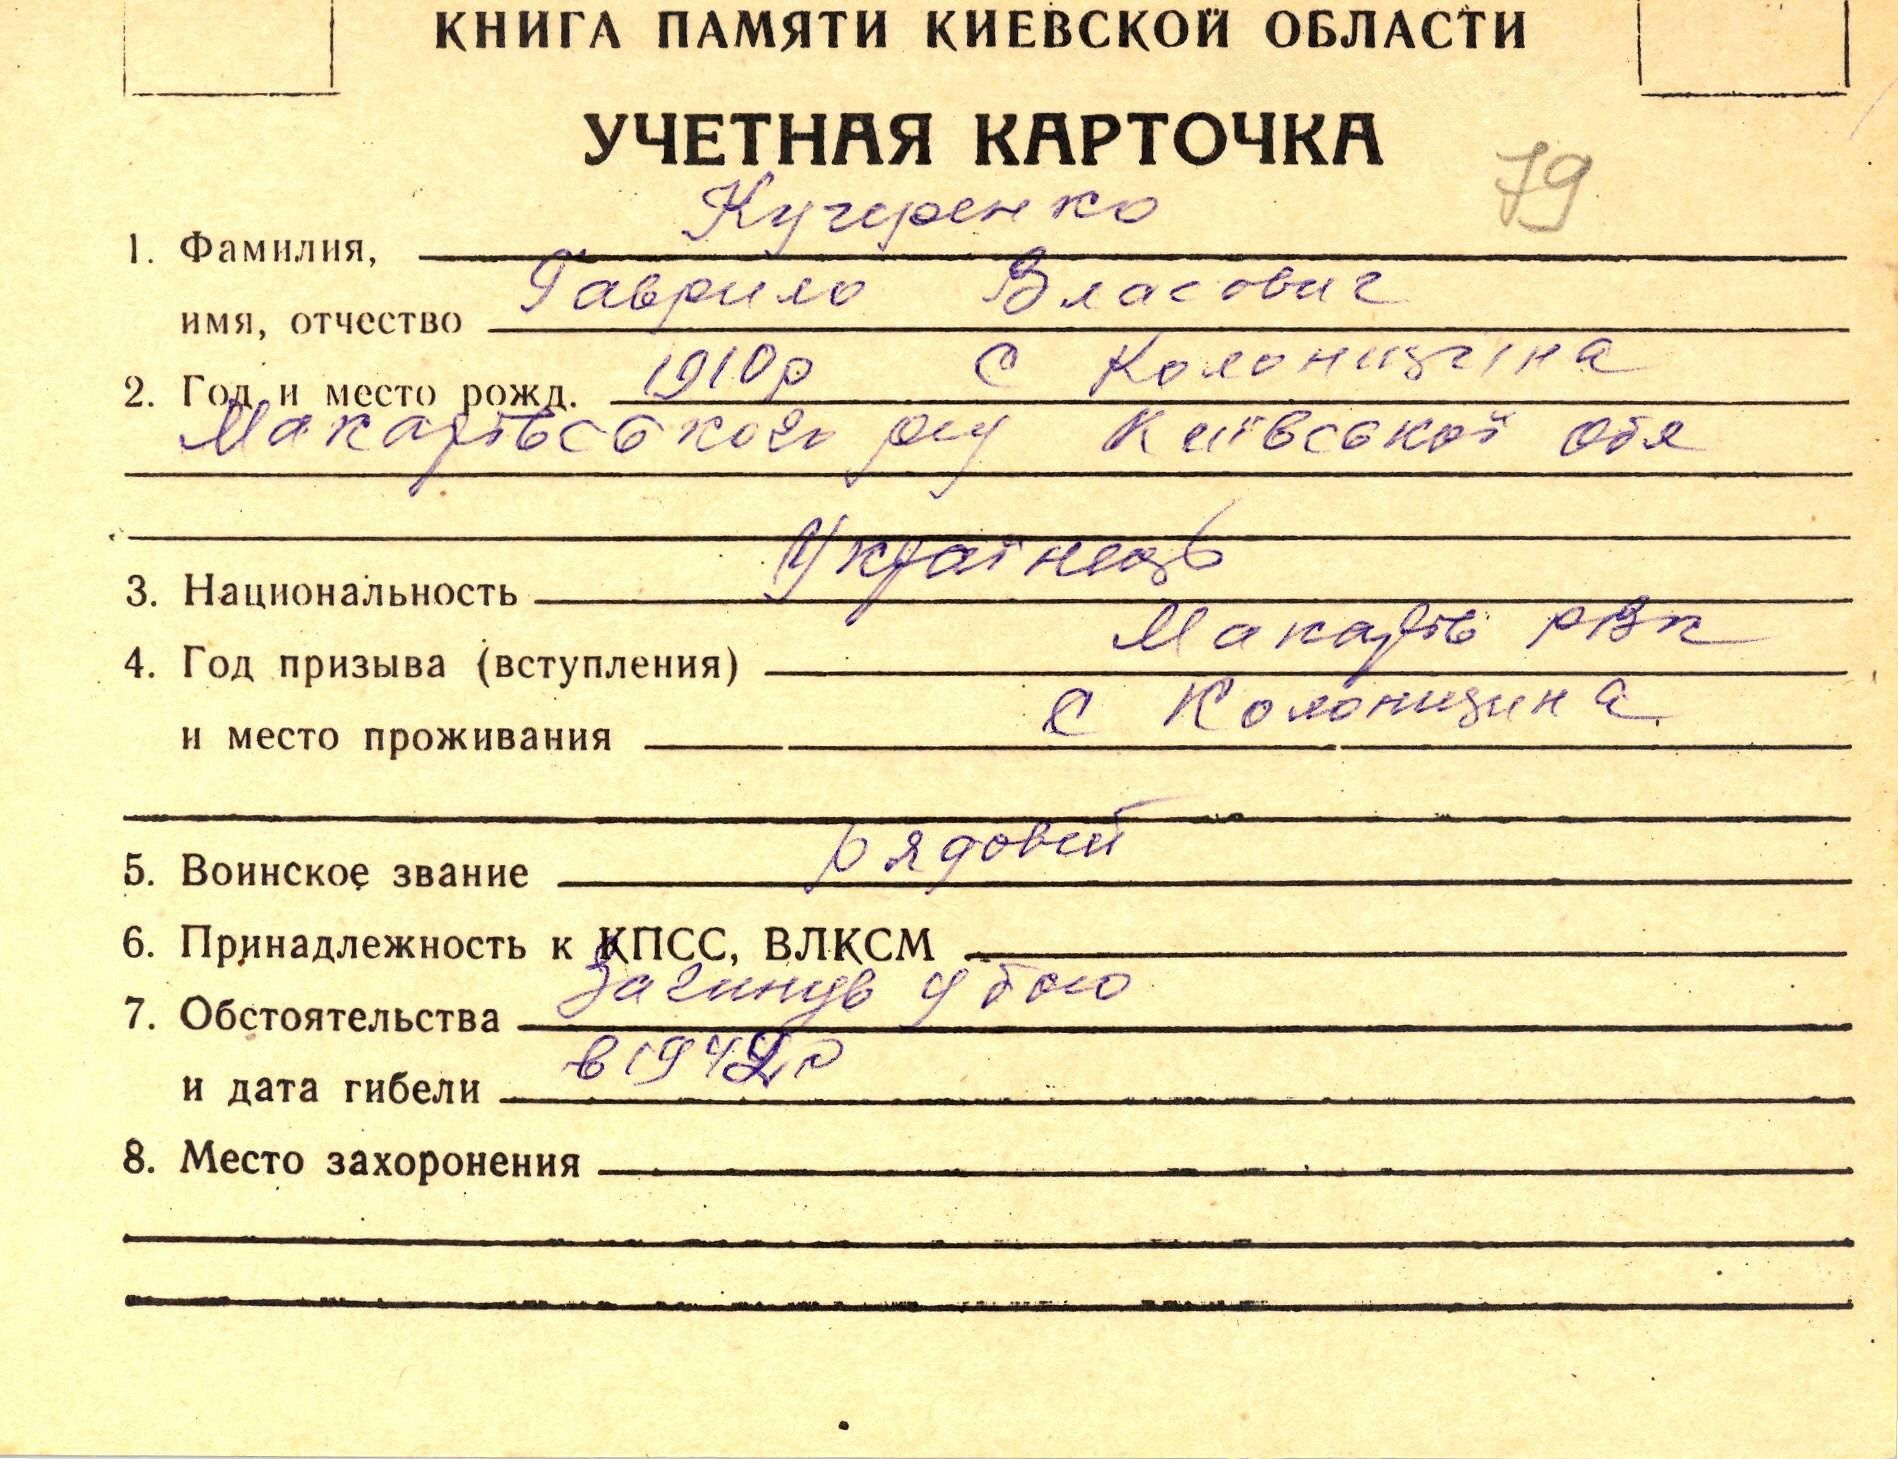 КНИГА ПАМЯТИ КИЕВСКОЙ ОБЛАСТИ
УЧЕТНАЯ КАРТОЧКА
79
1. Фамилия, Кучеренко
имя, отчество Гаврило Власович
2. Год и место рожд. 1910р С Колонщина
Макарівського р-ну Київської обл
3. Национальность Українець
4. Год призыва (вступления) Макарів РВК
и место проживания С Колонщина
5. Воинское звание рядовий
6. Принадлежность к КПСС, ВЛКСМ
7. Обстоятельства Загинув у бою
и дата гибели в 1942р
8. Место захоронения